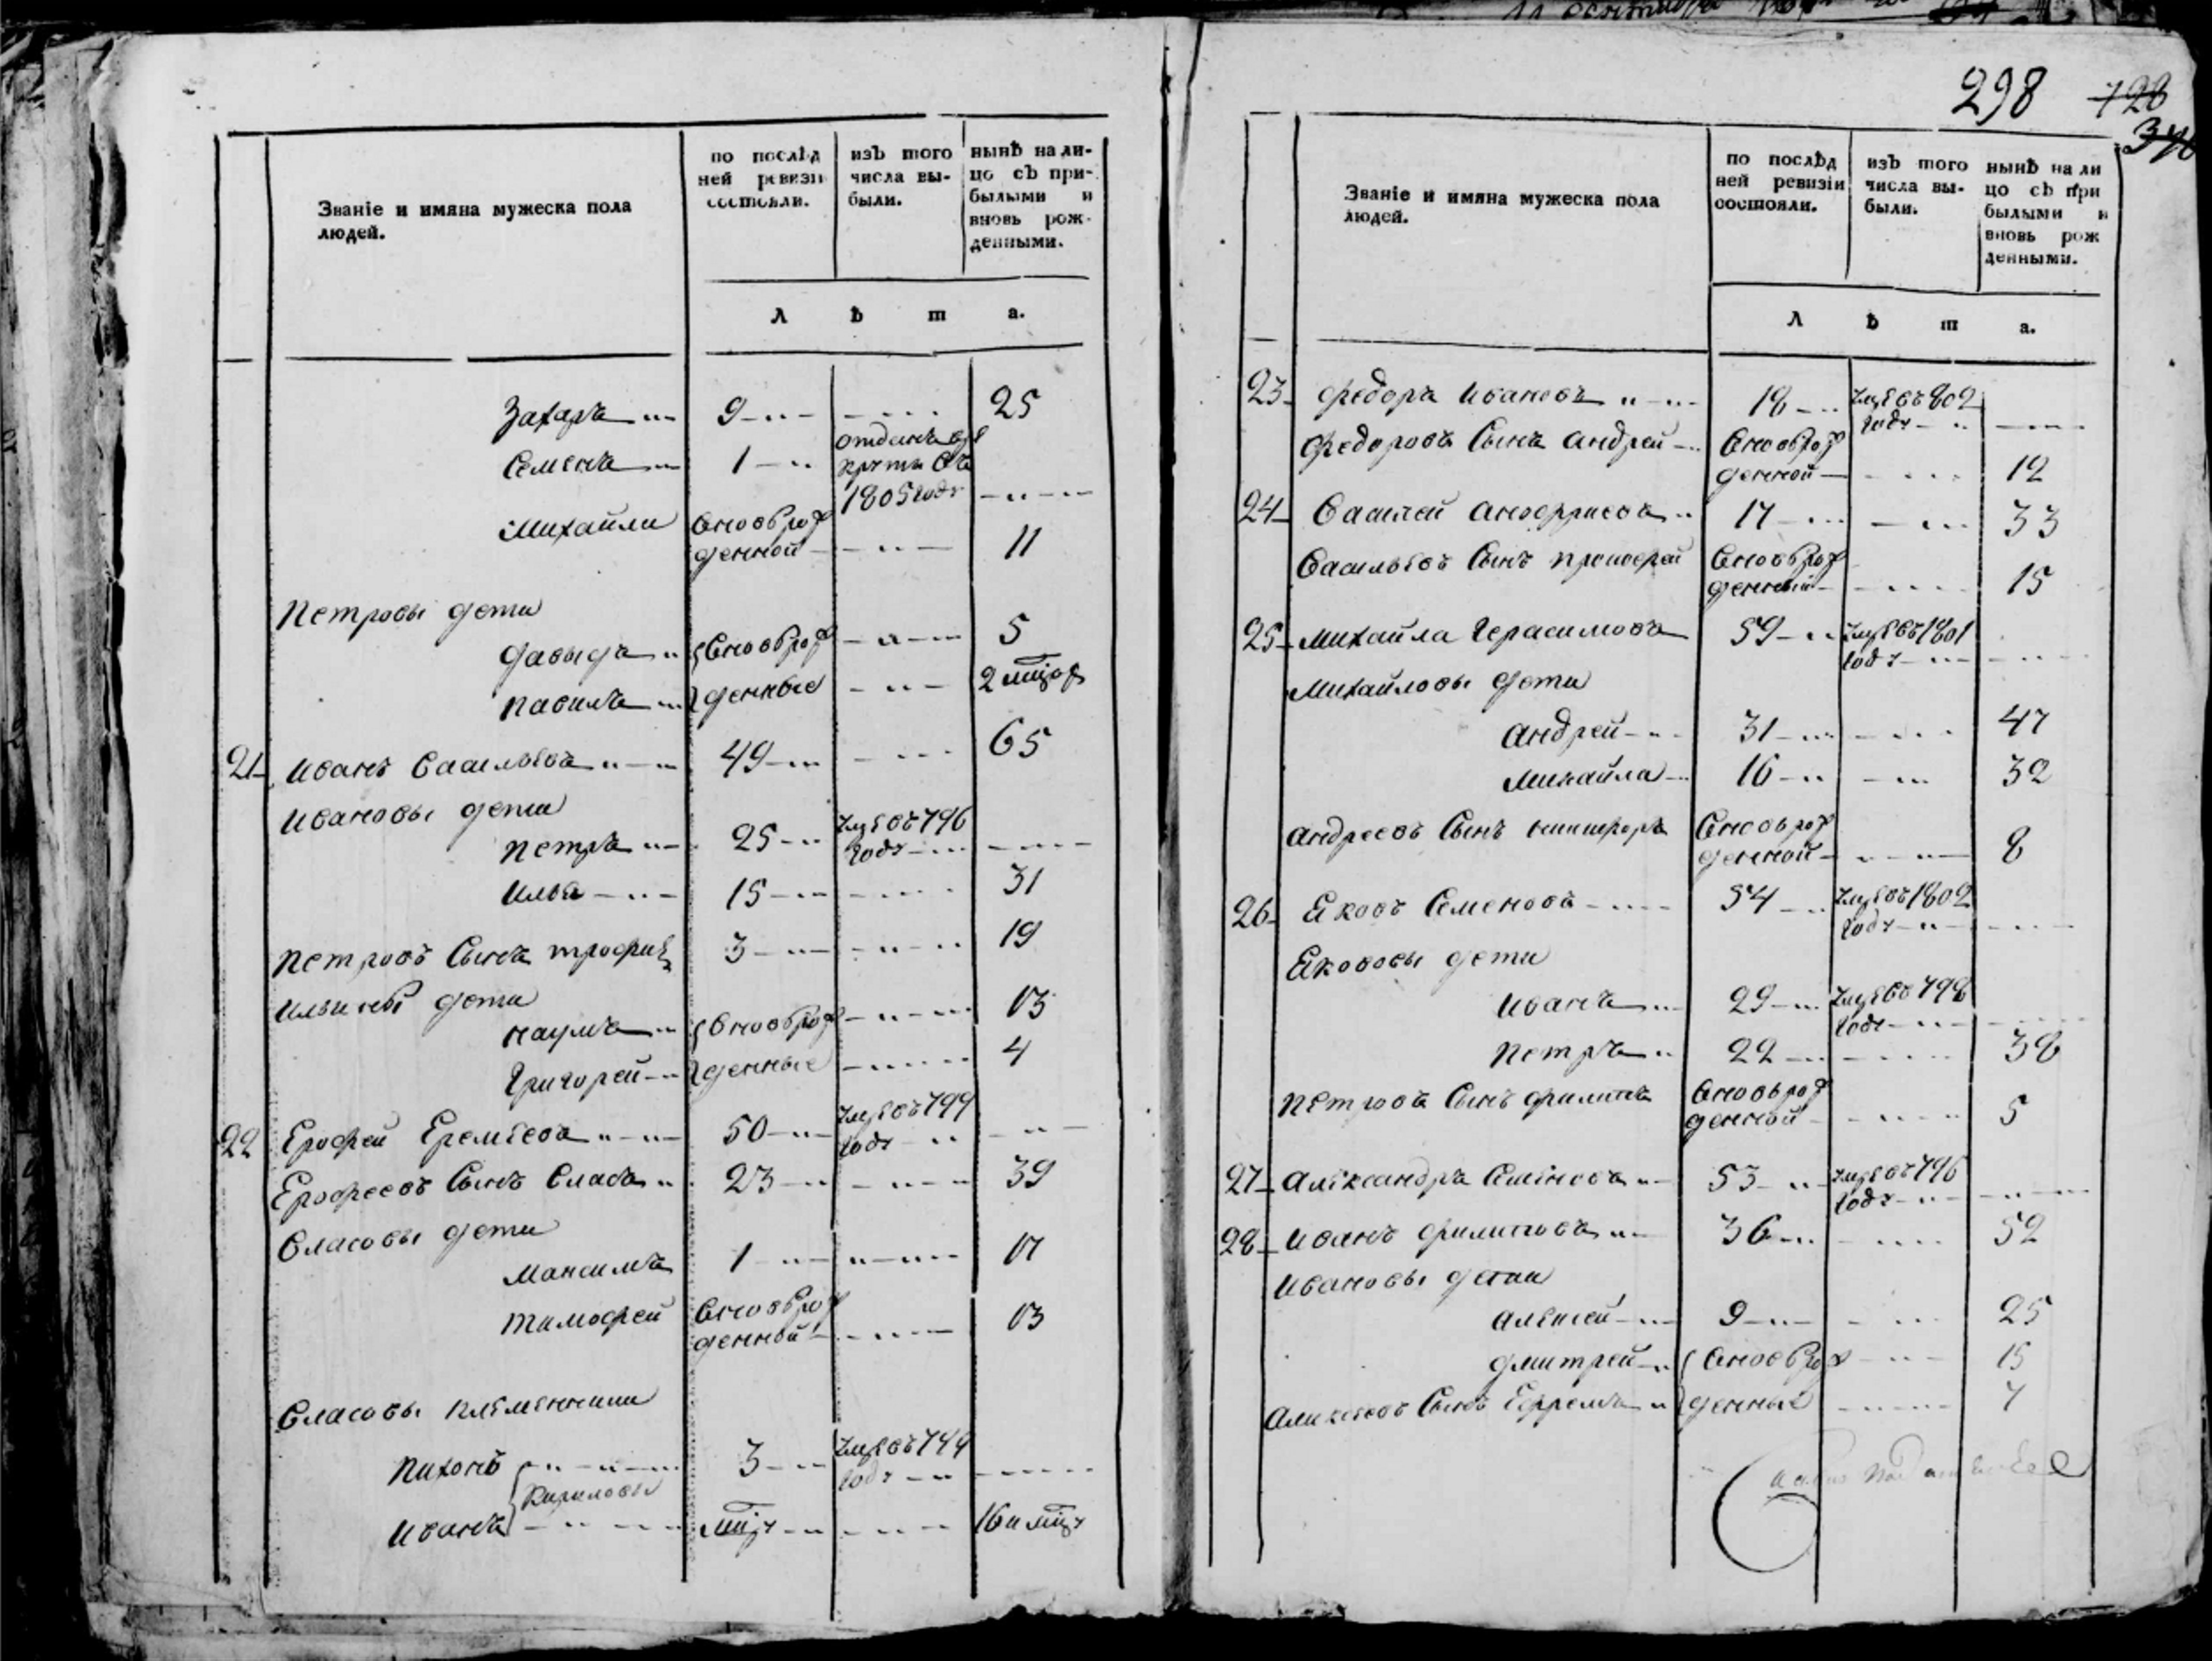 298 728
346
Званіе и имяна мужеска пола
людей.
по послѣд
ней ревизіи
состояли.
изъ того
числа вы-
были.
нынѣ на ли-
цо съ при-
былыми и
вновь рож-
денными.
Л ѣ т а.
Захаръ 9 25
Семенъ 1 отданъ в
рекруты въ
1805 годе
Михайла вновьрож
денной 11
Петровы дети
Давыдъ вновьрож 5
Павилъ денные 2 мцов
21 Иванъ Васильевъ 49 65
Ивановы дети
Петръ 25 Умре въ 796
годе
Илья 15 31
Петровъ сынъ Трофимъ 3 19
Ильины дети
Наумъ вновьрож 13
Григорей денные 4
22 Ерофей Еремѣевъ 50 Умре въ 799
годе
Ерофеевъ сынъ Власъ 23 39
Власовы дети
Максимъ 1 17
Тимофей вновьрож 13
денной
Власовы племянники
Пихонъ 3 Умре въ 799
годе
Кириловы
Иванъ мцъ 16 и мцъ
Званіе и имяна мужеска пола
людей.
по послѣд
ней ревизіи
состояли.
изъ того
числа вы-
были.
нынѣ на ли
цо съ при
былыми и
вновь рож
денными.
Л ѣ т а.
23 Федоръ Ивановъ 18 Умре въ 802
годе
Федоровъ сынъ Андрей вновьрож
денной 12
24 Василей Анофриевъ 17 33
Васильевъ сынъ Прокофей вновьрож
денный 15
25 Михайла Герасимовъ 59 Умре въ 1801
годе
Михайловы дети
Андрей 31 47
Михайла 16 32
Андреевъ сынъ Никифоръ вновьрож
денной 8
26 Яковъ Семеновъ 54 Умре въ 1802
годе
Якововы дети
Иванъ 29 Умре въ 798
годе
Петръ 22 38
Петровъ сынъ Филипъ вновьрож
денной 5
27 Александръ Семеновъ 53 Умре въ 796
годе
28 Иванъ Филиповъ 36 52
Ивановы дети
Алексей 9 25
Дмитрей вновьрож 15
Алексеевъ сынъ Ефремъ денные 7